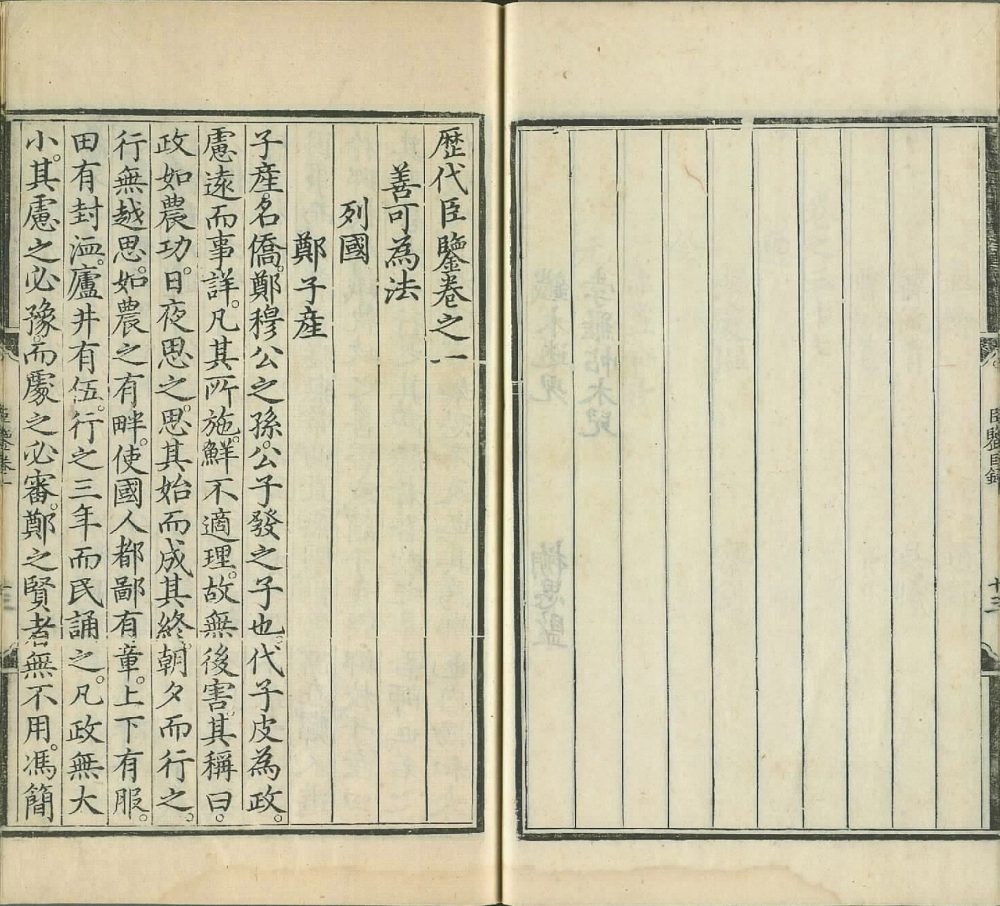 臣鑒目錄
十三
歷代臣鑒卷之一
善可為法
列國
鄭子產
子產。名僑。鄭穆公之孫。公子發之子也。代子皮為政。
慮遠而事詳。凡其所施。鮮不適理。故無後害。其稱曰。
政如農功。日夜思之。思其始而成其終。朝夕而行之。
行無越思。如農之有畔。使國人都鄙有章。上下有服。
田有封洫。廬井有伍。行之三年而民誦之。凡政無大
小。其慮之必豫。而處之必審。鄭之賢者無不用。馮簡